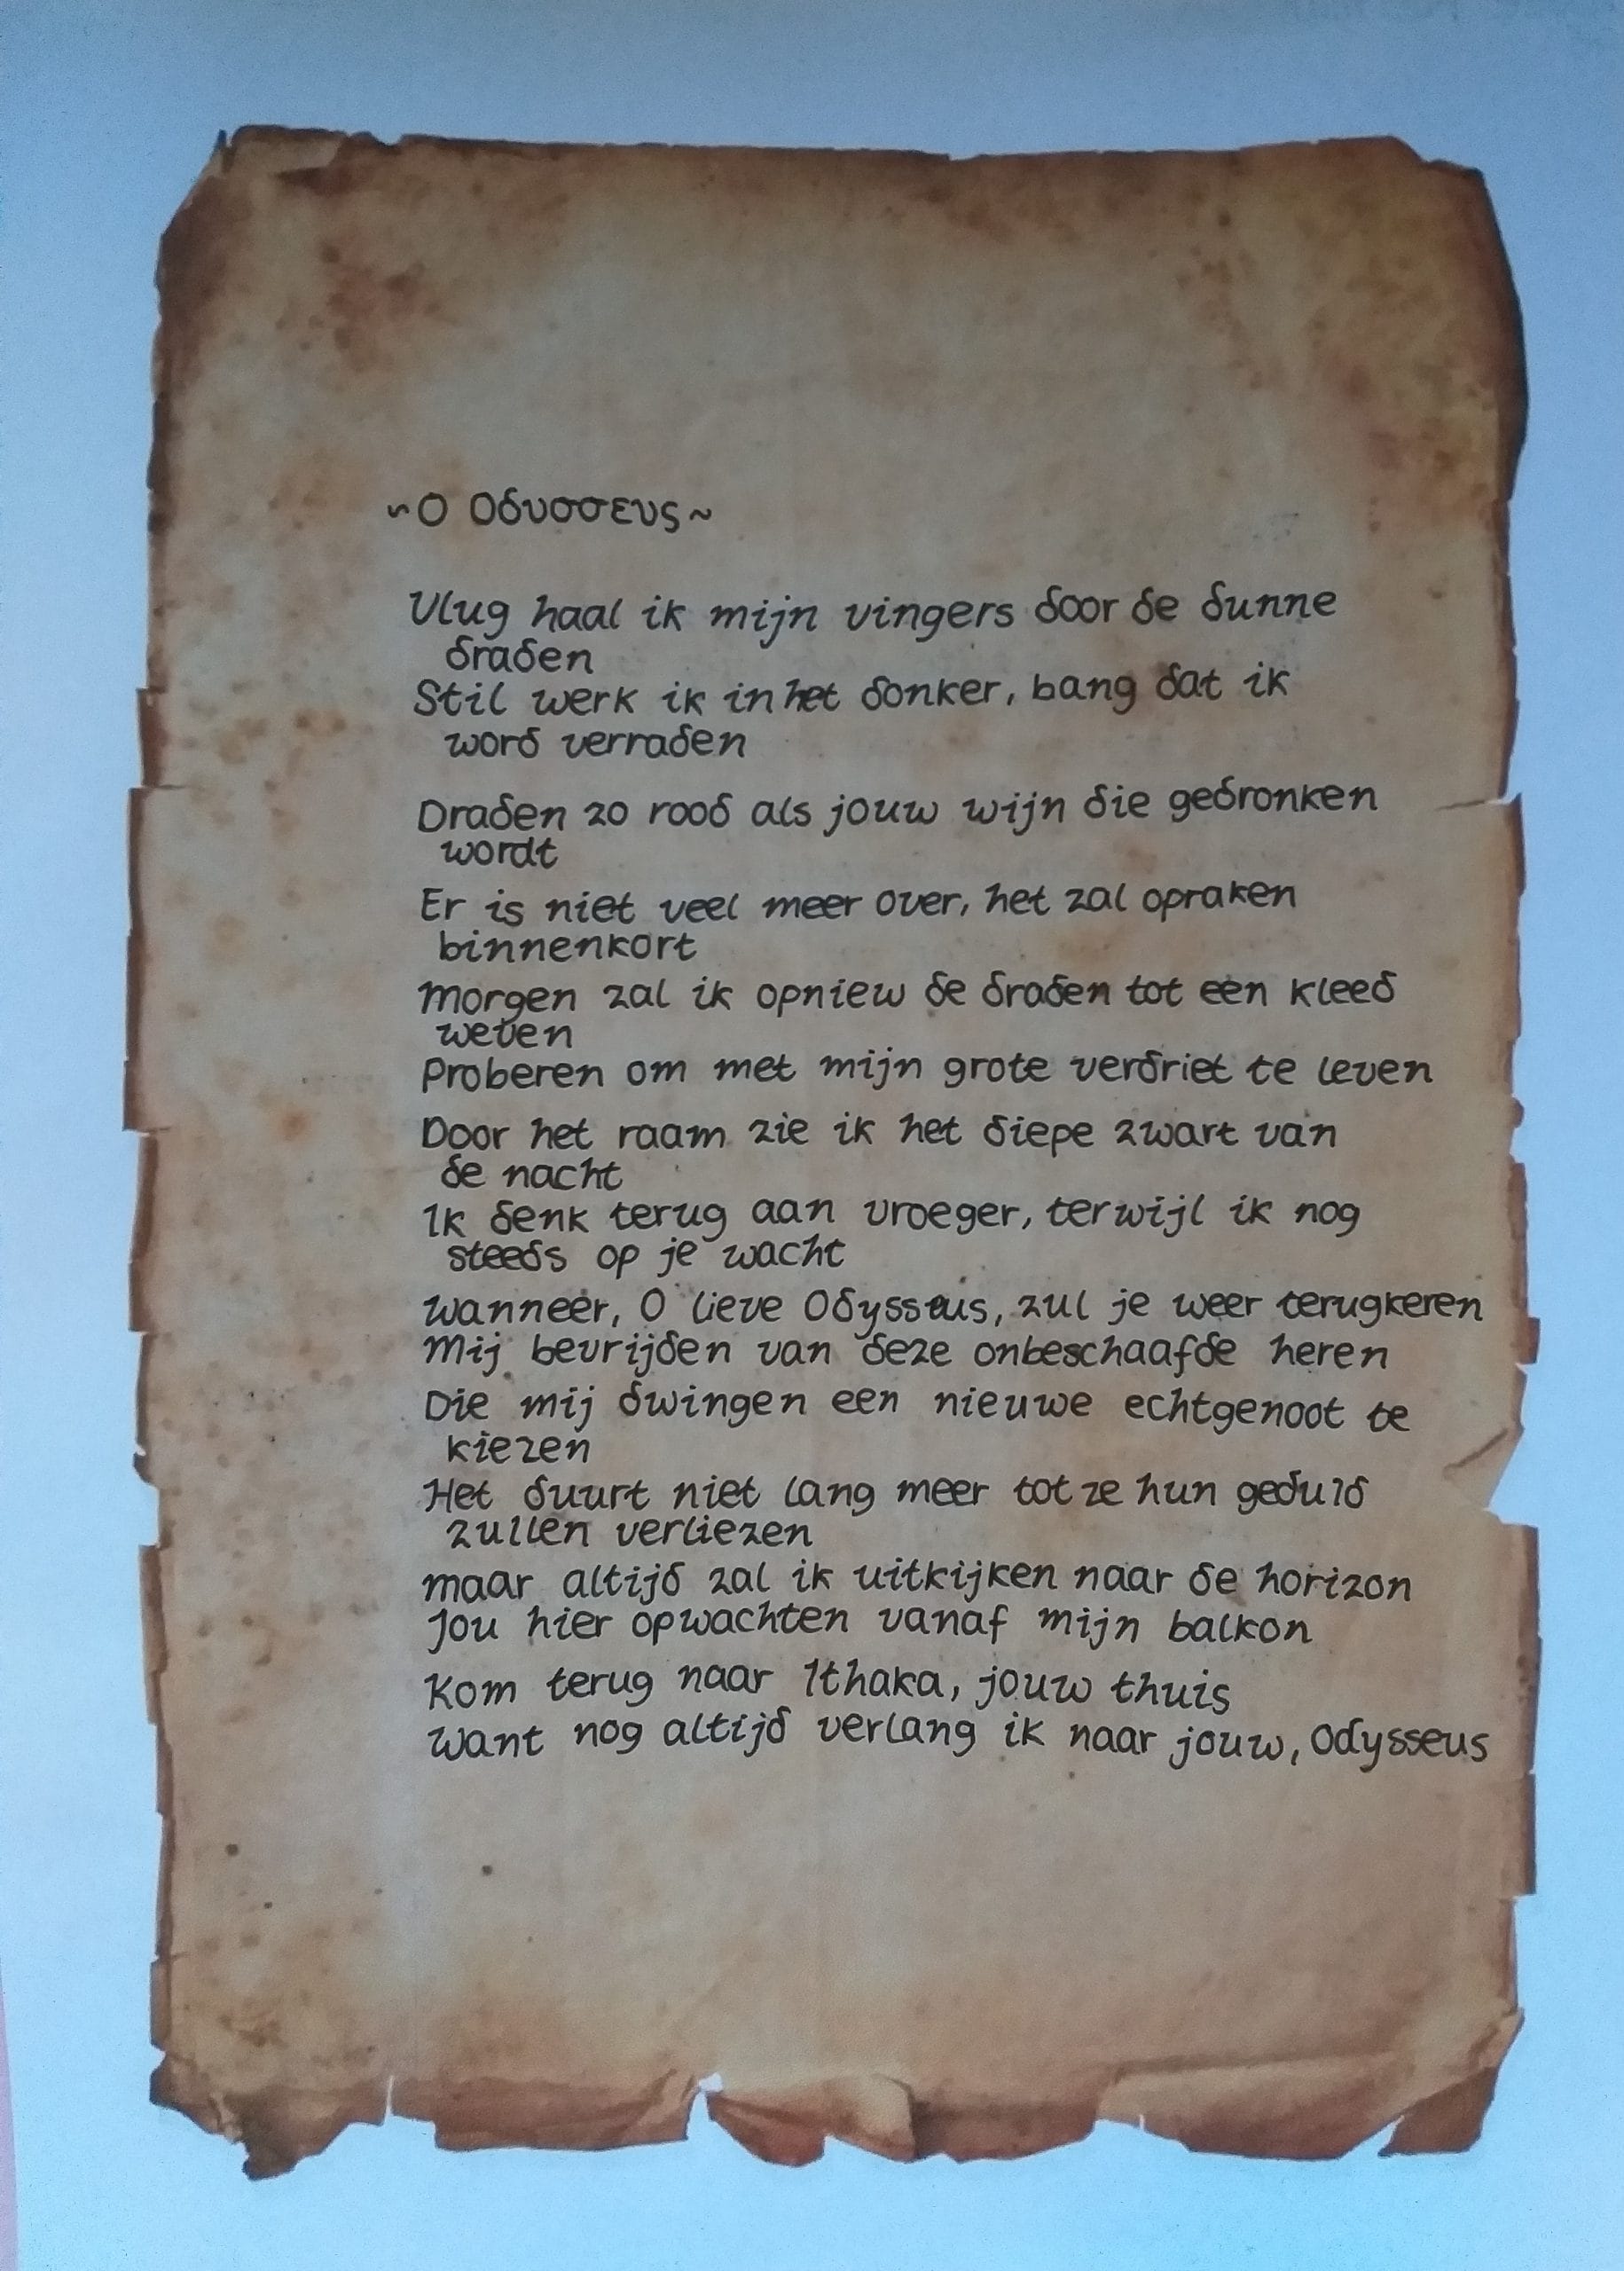 ~O Οδυσσευς~
Vlug haal ik mijn vingers door de dunne
draden
Stil werk ik in het donker, bang dat ik
word verraden
Draden zo rood als jouw wijn die gedronken
wordt
Er is niet veel meer over, het zal opraken
binnenkort
Morgen zal ik opniew de draden tot een kleed
weven
Proberen om met mijn grote verdriet te leven
Door het raam zie ik het diepe zwart van
de nacht
Ik denk terug aan vroeger, terwijl ik nog
steeds op je wacht
Wanneer, O lieve Odysseus, zul je weer terugkeren
Mij bevrijden van deze onbeschaafde heren
Die mij dwingen een nieuwe echtgenoot te
kiezen
Het duurt niet lang meer tot ze hun geduld
zullen verliezen
Maar altijd zal ik uitkijken naar de horizon
Jou hier opwachten vanaf mijn balkon
Kom terug naar Ithaka, jouw thuis
Want nog altijd verlang ik naar jouw, Odysseus